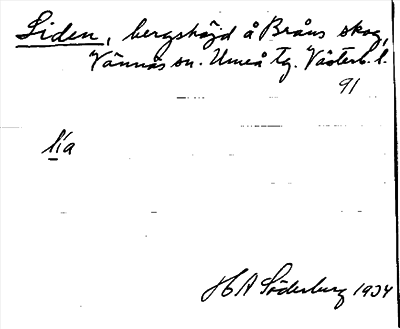 Liden, bergshöjd å Bråns skog,
Vännäs sn. Umeå tg. Västerb. l.
91
lia
H A Söderberg 1934